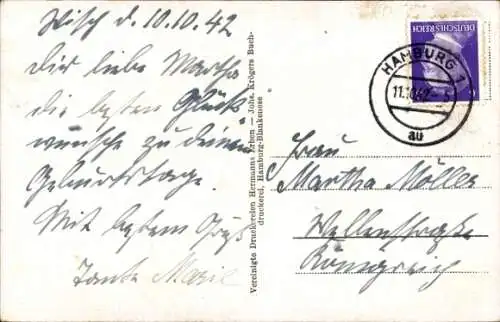 Wisch d. 10.10.42
Dir liebe Martha
die besten Glück
wünsche zu deinem
Geburtstage.
Mit bestem Gruß
Tante Marie
Vereinigte Druckereien Hermanns Erben — Johs. Krögers Buch-
druckerei, Hamburg-Blankenese
DEUTSCHES REICH
HAMBURG 1
11.10.42
au
Frau
Martha Möller
Wellenstraße
Königreich